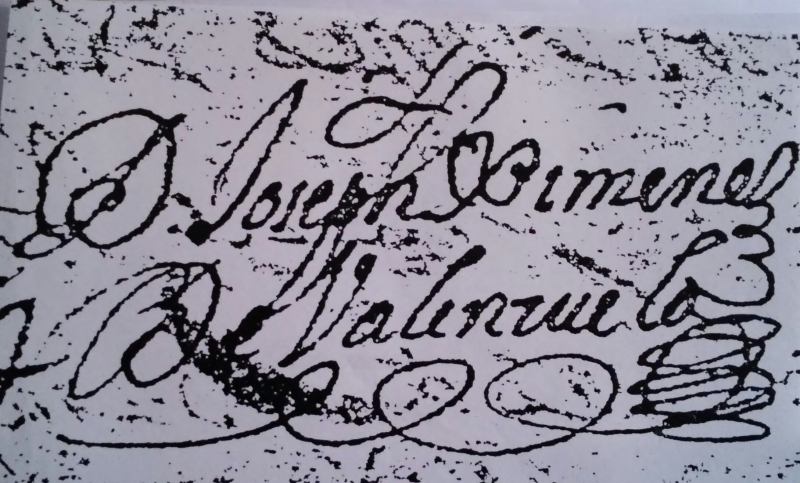 D. Joseph Ximenez
De Valenzuela